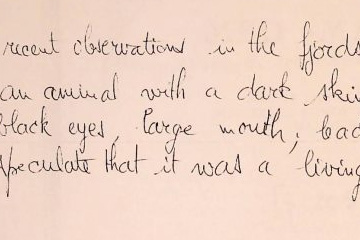 recent observations in the fjords
an animal with a dark skin
black eyes, large mouth; bad
speculate that it was a living